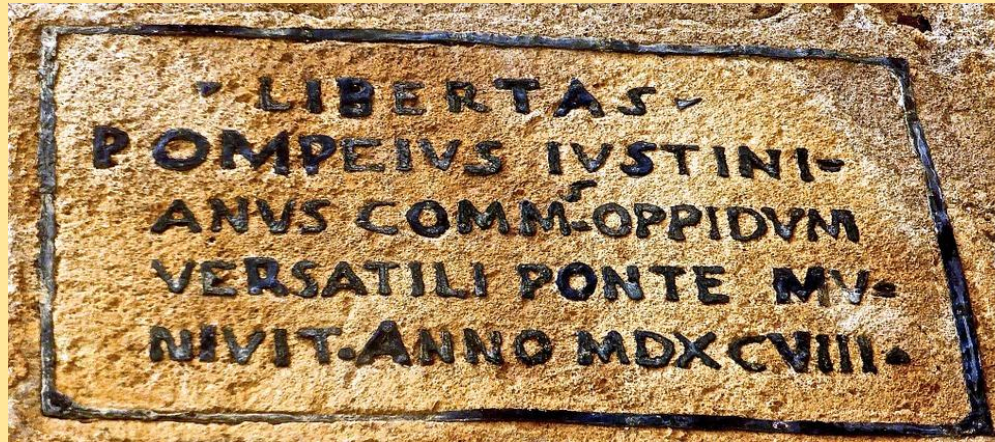 · LIBERTAS ·
POMPEIVS IVSTINI-
ANVS COMMˢ·OPPIDVM
VERSATILI PONTE MV-
NIVIT·ANNO MDXCVIII·